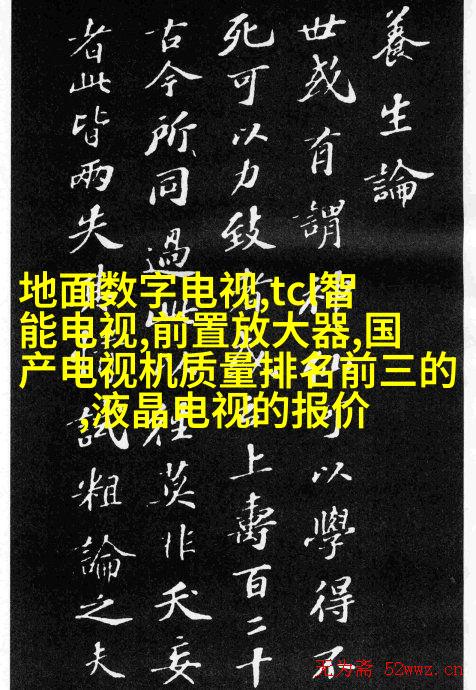 養生論
世或有謂可以學得不
死可以力致上壽百二十
古今所同過此往莫非夭妄
者此皆兩失試粗論之夫
地面数字电视,tcl智
能电视,前置放大器,国
产电视机质量排名前三的
,液晶电视的报价
无为斋 52wwz.cn